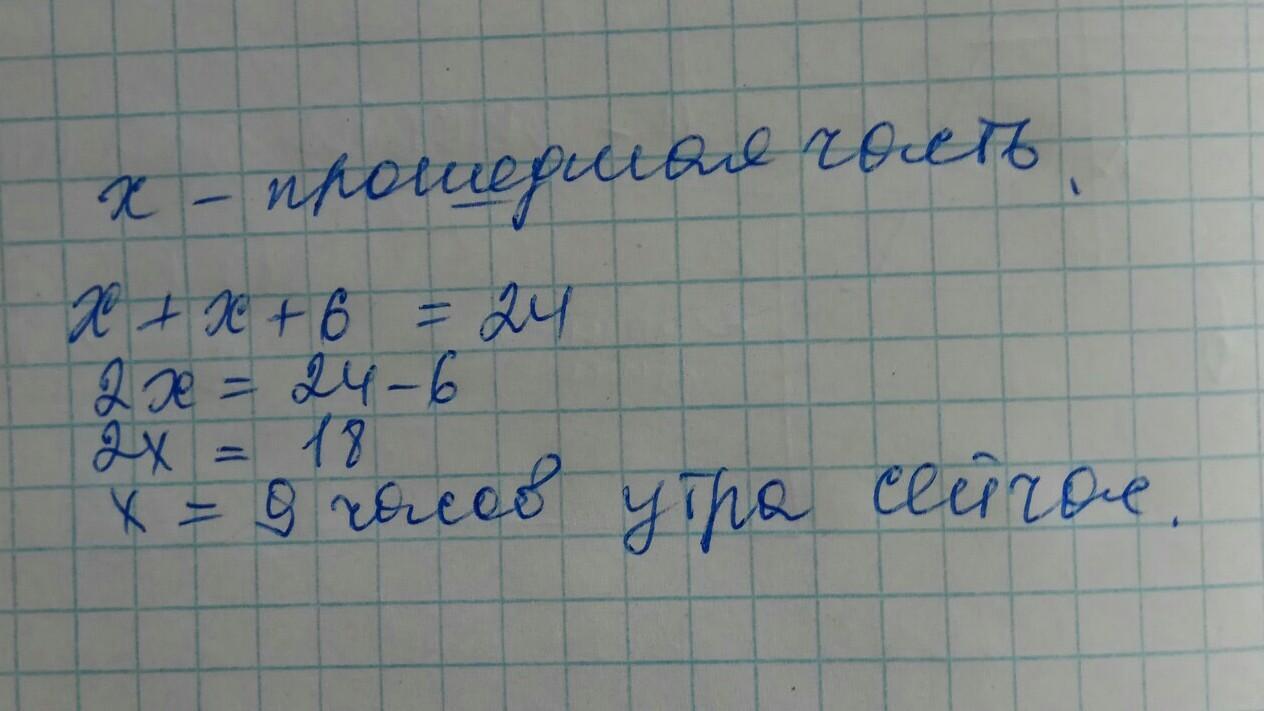 х – прошедшая часть.
х + х + 6 = 24
2х = 24 – 6
2х = 18
х = 9 часов утра сейчас.